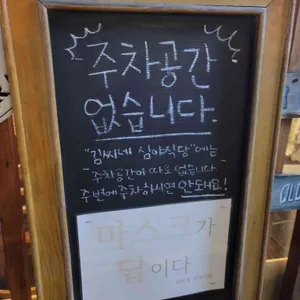 주차공간
없습니다.
"김씨네 심야식당"에는
주차공간이 따로 없습니다
주변에 주차하시면 안돼요!
마스크가
답이다